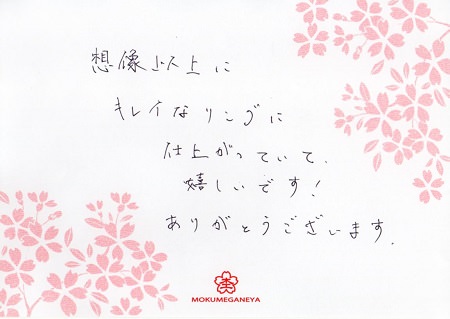 想像以上に
キレイなリングに
仕上がっていて、
嬉しいです!
ありがとうございます.
MOKUMEGANEYA